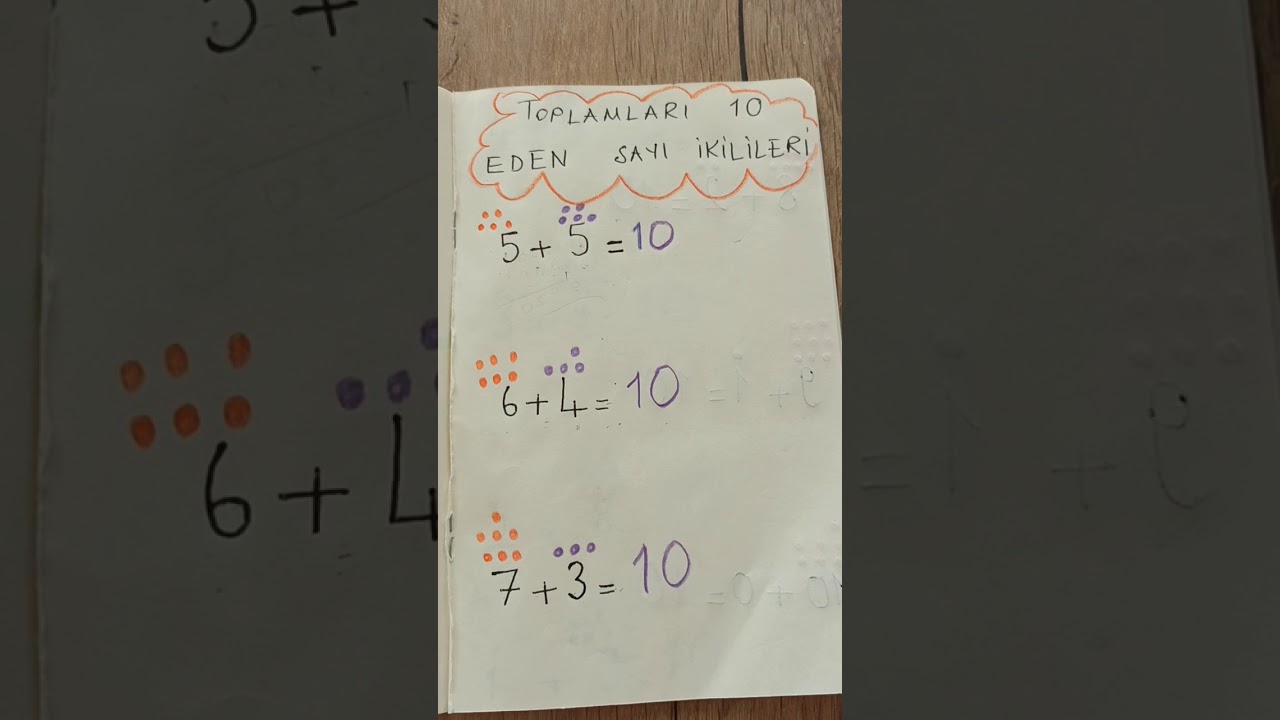 TOPLAMLARI 10
EDEN SAYI İKİLİLERİ
5 + 5 = 10
6 + 4 = 10
7 + 3 = 10